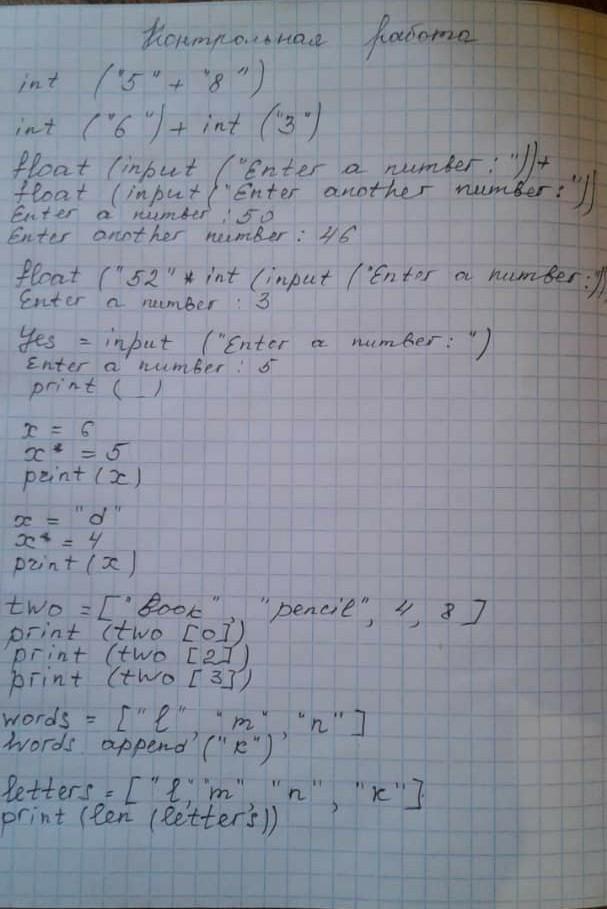 Контрольная работа
int ("5" + "8")
int ("6") + int ("3")
float (input ("Enter a number: "))+
float (input ("Enter another number: "))
Enter a number : 50
Enter another number : 46
float ("52" * int (input ("Enter a number:"))
Enter a number : 3
Yes = input ("Enter a number: ")
Enter a number : 5
print ( _ )
x = 6
x* = 5
print (x)
x = "d"
x* = 4
print (x)
two = ["Book", "pencil", 4, 8]
print (two [0])
print (two [2])
print (two [3])
words = ["l", "m", "n"]
words append ("k")
letters = ["l", "m", "n", "k"]
print (len (letters))